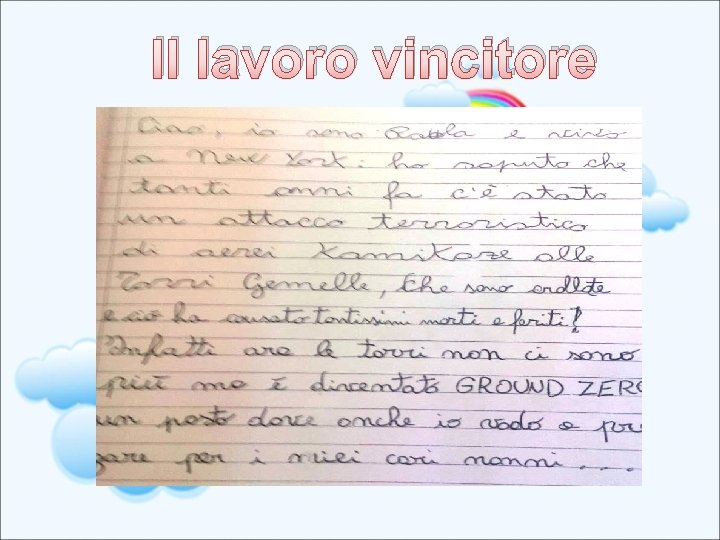 Il lavoro vincitore
Ciao, io sono Paola e vivo
a New York: ho saputo che
tanti anni fa c'è stato
un attacco terroristico
di aerei Kamikaze alle
Torri Gemelle, che sono crollate
e ciò ha causato tantissimi morti e feriti!
Infatti ora le torri non ci sono
più ma è diventato GROUND ZERO
un posto dove anche io vado a pre
gare per i miei cari nonni....